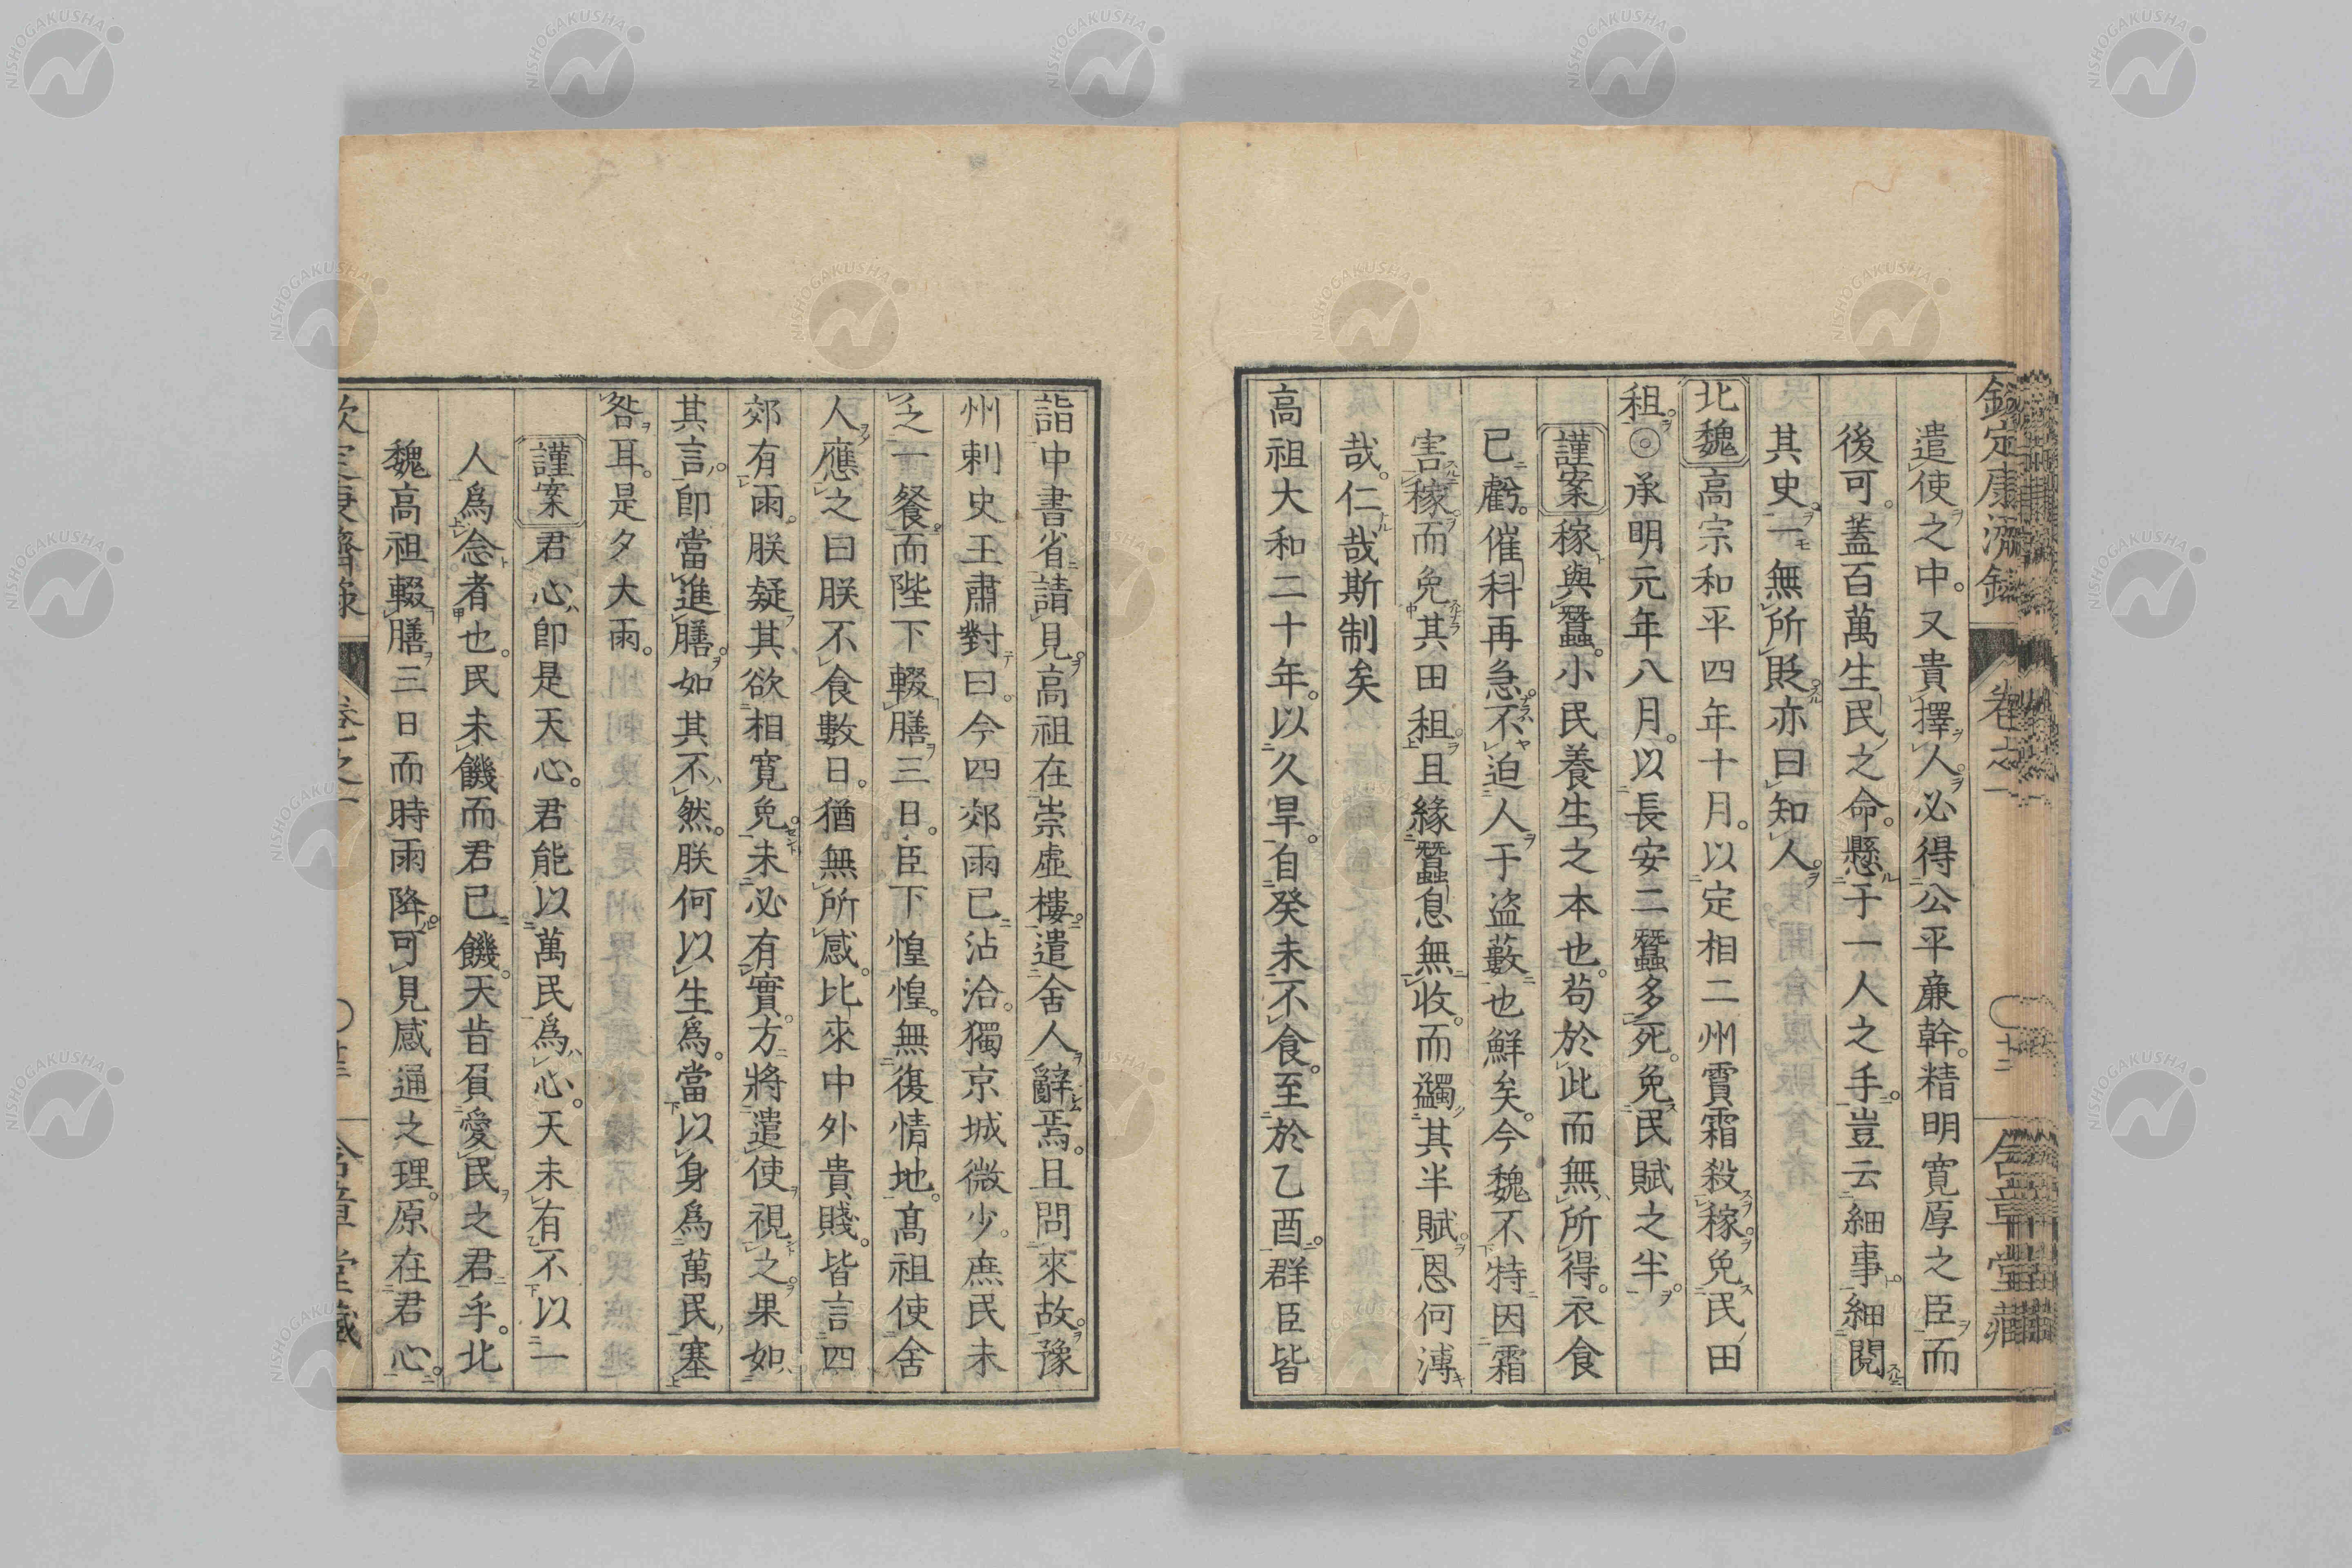 欽定康濟録 卷之一 ○十二 含章堂藏
遣使之中。又貴擇人。必得公平廉幹。精明寛厚之臣。而
後可。蓋百萬生民之命。懸于一人之手。豈云細事。細閲
其史。一無所貶。亦曰知人。
北魏高宗和平四年十月。以定相二州霣霜殺稼。免民田
租。◎承明元年八月。以長安二蠶多死。免民賦之半。
謹案稼與蠶。小民養生之本也。茍於此而無所得。衣食
已虧。催科再急。不迫人于盗藪也鮮矣。今魏不特因霜
害稼而免其田租。且緣蠶息無收。而蠲其半賦。恩何溥
哉。仁哉斯制矣
高祖大和二十年。以久旱。自癸未不食。至於乙酉。群臣皆
詣中書省請見。高祖在崇虚樓。遣舍人辭焉。且問來故。豫
州刺史王肅對曰。今四郊雨已沾洽。獨京城微少。庶民未
乏一餐。而陛下輟膳三日。臣下惶惶。無復情地。高祖使舍
人應之曰朕不食數日。猶無所感。比來中外貴賤。皆言四
郊有雨。朕疑其欲相寛免。未必有實。方將遣使視之。果如
其言。即當進膳。如其不然。朕何以生爲。當以身爲萬民塞
咎耳。是夕大雨。
謹案君心即是天心。君能以萬民爲心。天未有不以一
人爲念者也。民未饑而君已饑。天昔肎愛民之君乎。北
魏高祖輟膳三日而時雨降。可見感通之理。原在君心。
欽定康濟録 卷之一 含章堂藏
NISHOGAKUSHA